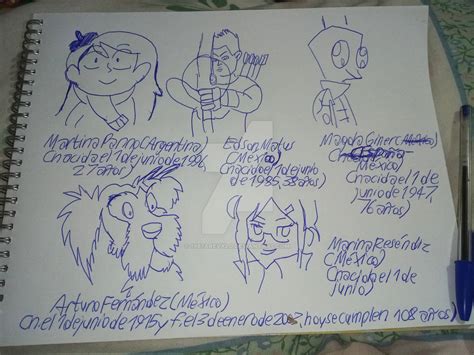 Martina Parno (Argentina)
(nacida el 1 de junio de 1996,
27 años)
Edson Matus
(México)
(nacido el 1 de junio
de 1985, 38 años)
Magda Giner (
España
México)
(nacida el 1 de
junio de 1947,
76 años)
Arturo Fernández (México)
(n. el 1 de junio de 1915 y f. el 3 de enero de, hoy se cumplen 108 años)
Marina Reséndiz
(México)
(nacida el 1 de
junio)